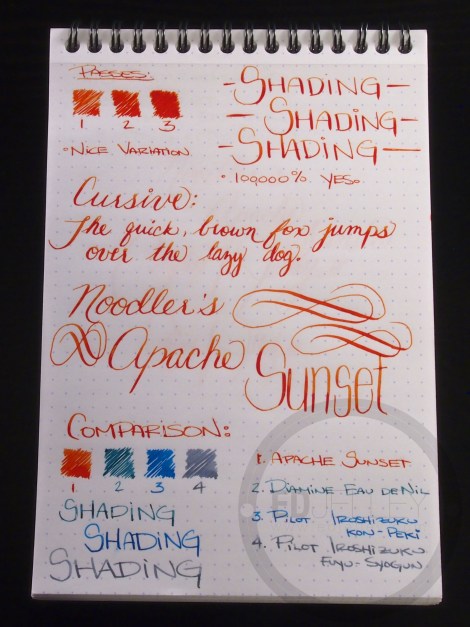 PASSES:
1 2 3
• NICE VARIATION
- SHADING -
- SHADING -
- SHADING -
• 100,000% YES •
Cursive:
The quick, brown fox jumps
over the lazy dog.
Noodler's
Apache
Sunset
COMPARISON:
1 2 3 4
SHADING
SHADING
SHADING
1. APACHE SUNSET
2. DIAMINE EAU DE NIL
3. PILOT IROSHIZUKU
KON-PEKI
4. PILOT IROSHIZUKU
FUYU-SYOGUN